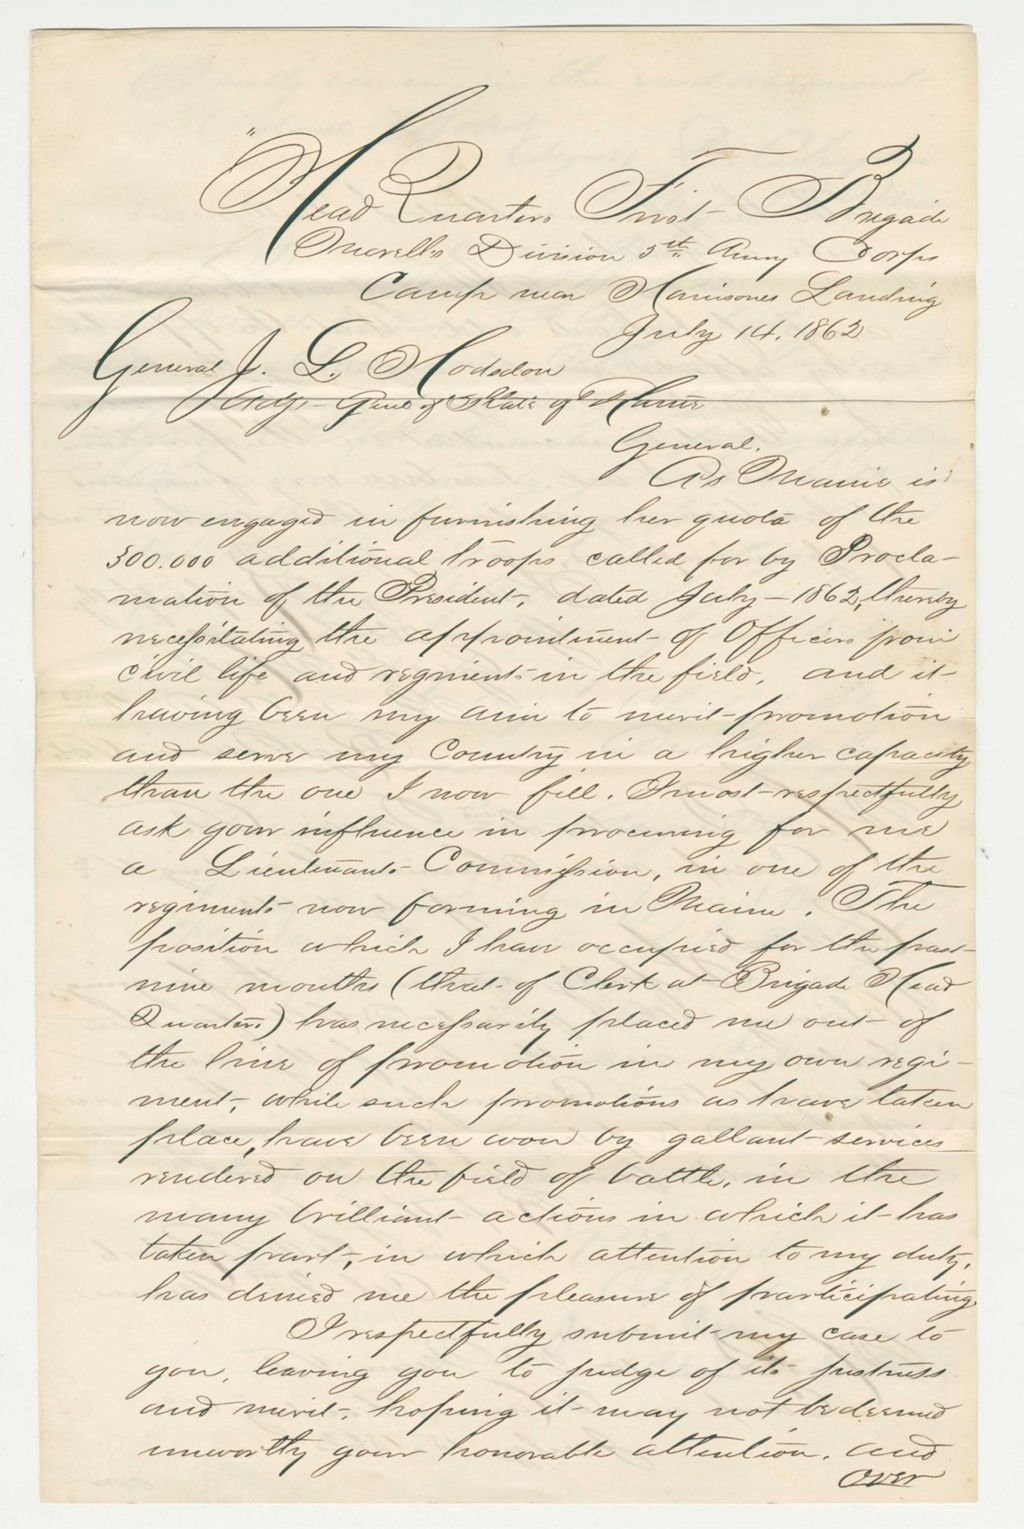 "Head Quarters First Brigade
Morell's Division 5th Army Corps
Camp near Harrisones Landing
July 14. 1862
General J. L. Hodsdon
Adjt Genl of State of Maine
General.
As Maine is
now engaged in furnishing her quota of the
300.000 additional troops called for by Procla-
mation of the President, dated July – 1862, thereby
necessitating the appointment of Officers from
civil life and regiments in the field, and it
having been my aim to merit promotion
and serve my Country in a higher capacity
than the one I now fill. I most respectfully
ask your influence in procuring for me
a Lieutenants Commission, in one of the
regiments now forming in Maine. The
position which I have occupied for the past
nine months (that of Clerk at Brigade Head
Quarters) has necessarily placed me out of
the line of promotion in my own regi-
ment, while such promotions as have taken
place, have been won by gallant services
rendered on the field of battle, in the
many brilliant actions in which it has
taken part, in which attention to my duty,
has denied me the pleasure of participating
I respectfully submit my case to
you, leaving you to judge of its justness
and merit, hoping it may not be deemed
unworthy your honorable attention, and
over